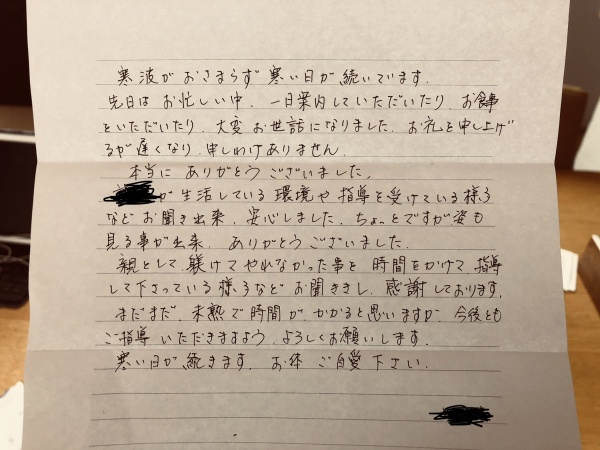 寒波がおさまらず寒い日が続いています.
先日はお忙しい中、一日案内していただいたり、お食事
をいただいたり、大変お世話になりました。お礼を申し上げ
るが遅くなり、申しわけありません。
本当にありがとうございました。
が生活している環境や指導を受けている様子
などお聞き出来、安心しました。ちょっとですが姿も
見る事が出来、ありがとうございました。
親として、躾けてやれなかった事を時間をかけて指導
して下さっている様子などお聞きし、感謝しております。
まだまだ、未熟で時間がかかると思いますが、今後とも
ご指導いただきますよう、よろしくお願いします。
寒い日が続きます。お体ご自愛下さい.